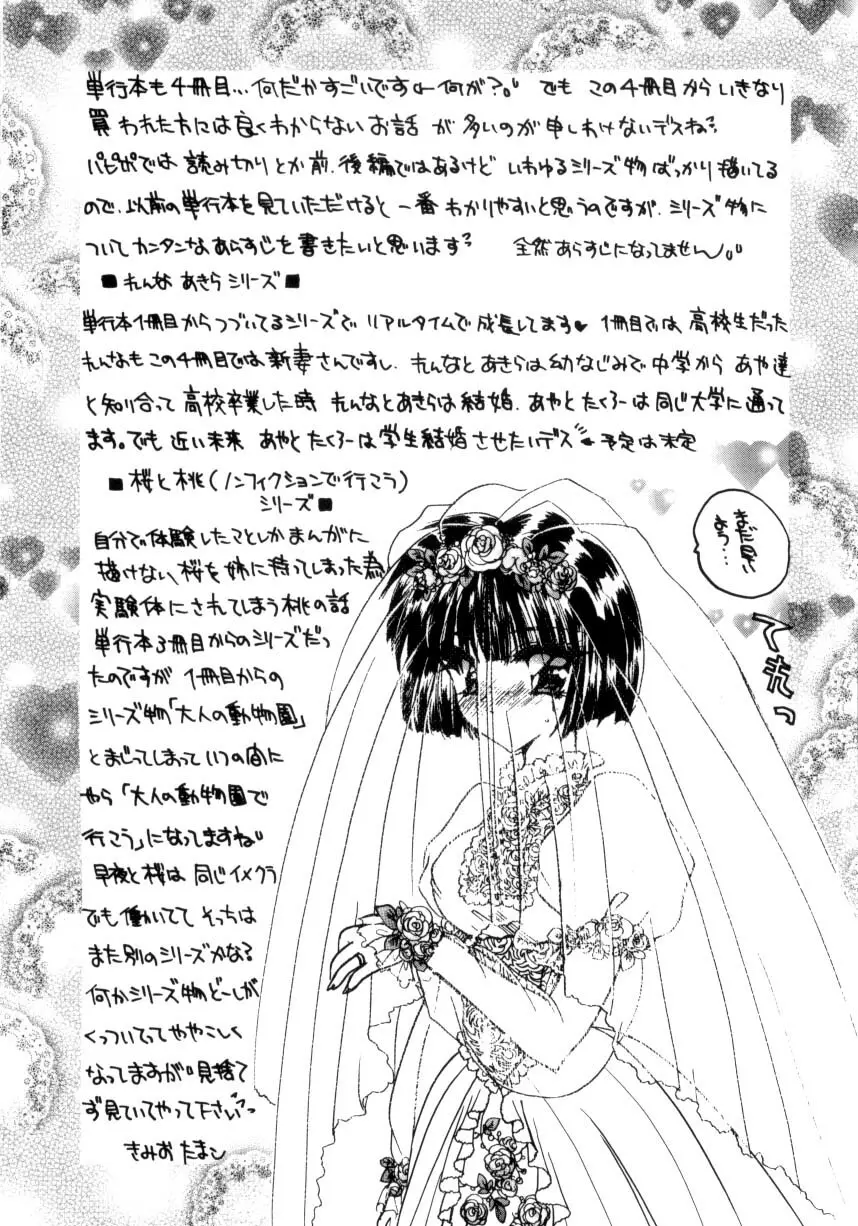 単行本も4冊目…何だかすごいです←何が?。 でも この4冊目から いきなり
買われた方には良くわからない お話 が 多いのが申しわけないデスね
パピポでは 読み切りとか前.後編ではあるけど いわゆるシリーズ物ばっかり描いてる
ので.以前の単行本を見ていただけると 一番 わかりやすいと思うのですが.シリーズ物に
ついてカンタンなあらすじを書きたいと思います 全然あらすじになってません。。
■れんな あきら シリーズ■
単行本1冊目からつづいてるシリーズで リアルタイムで成長してます♥ 1冊目では 高校生だった
れんなもこの4冊目では新妻さんですし. れんなとあきらは幼なじみで中学から あや達
と知り合って 高校卒業した時 れんなとあきらは結婚. あやとたくろーは同じ大学に通って
ます。でも 近い未来 あやとたくろーは学生結婚させたいデス ←予定は未定
■ 桜と桃(ノンフィクションで行こう)
シリーズ■
自分で体験したことしかまんがに
描けない、桜を姉に持ってしまった為
実験体にされてしまう桃の話
単行本3冊目からのシリーズだっ
たのですが 1冊目からの
シリーズ物「大人の動物園」
とまじってしまって いつの間に
やら「大人の動物園で
行こう」になってますね
早夜と桜は 同じイメクラ
でも働いてて そっちは
また別のシリーズかなる
何かシリーズ物どーしが
くっついてってややこしく
なってますが 見捨て
ず見ていてやって下さい
きみおたまこ
まだ早い
よう…
てれっ